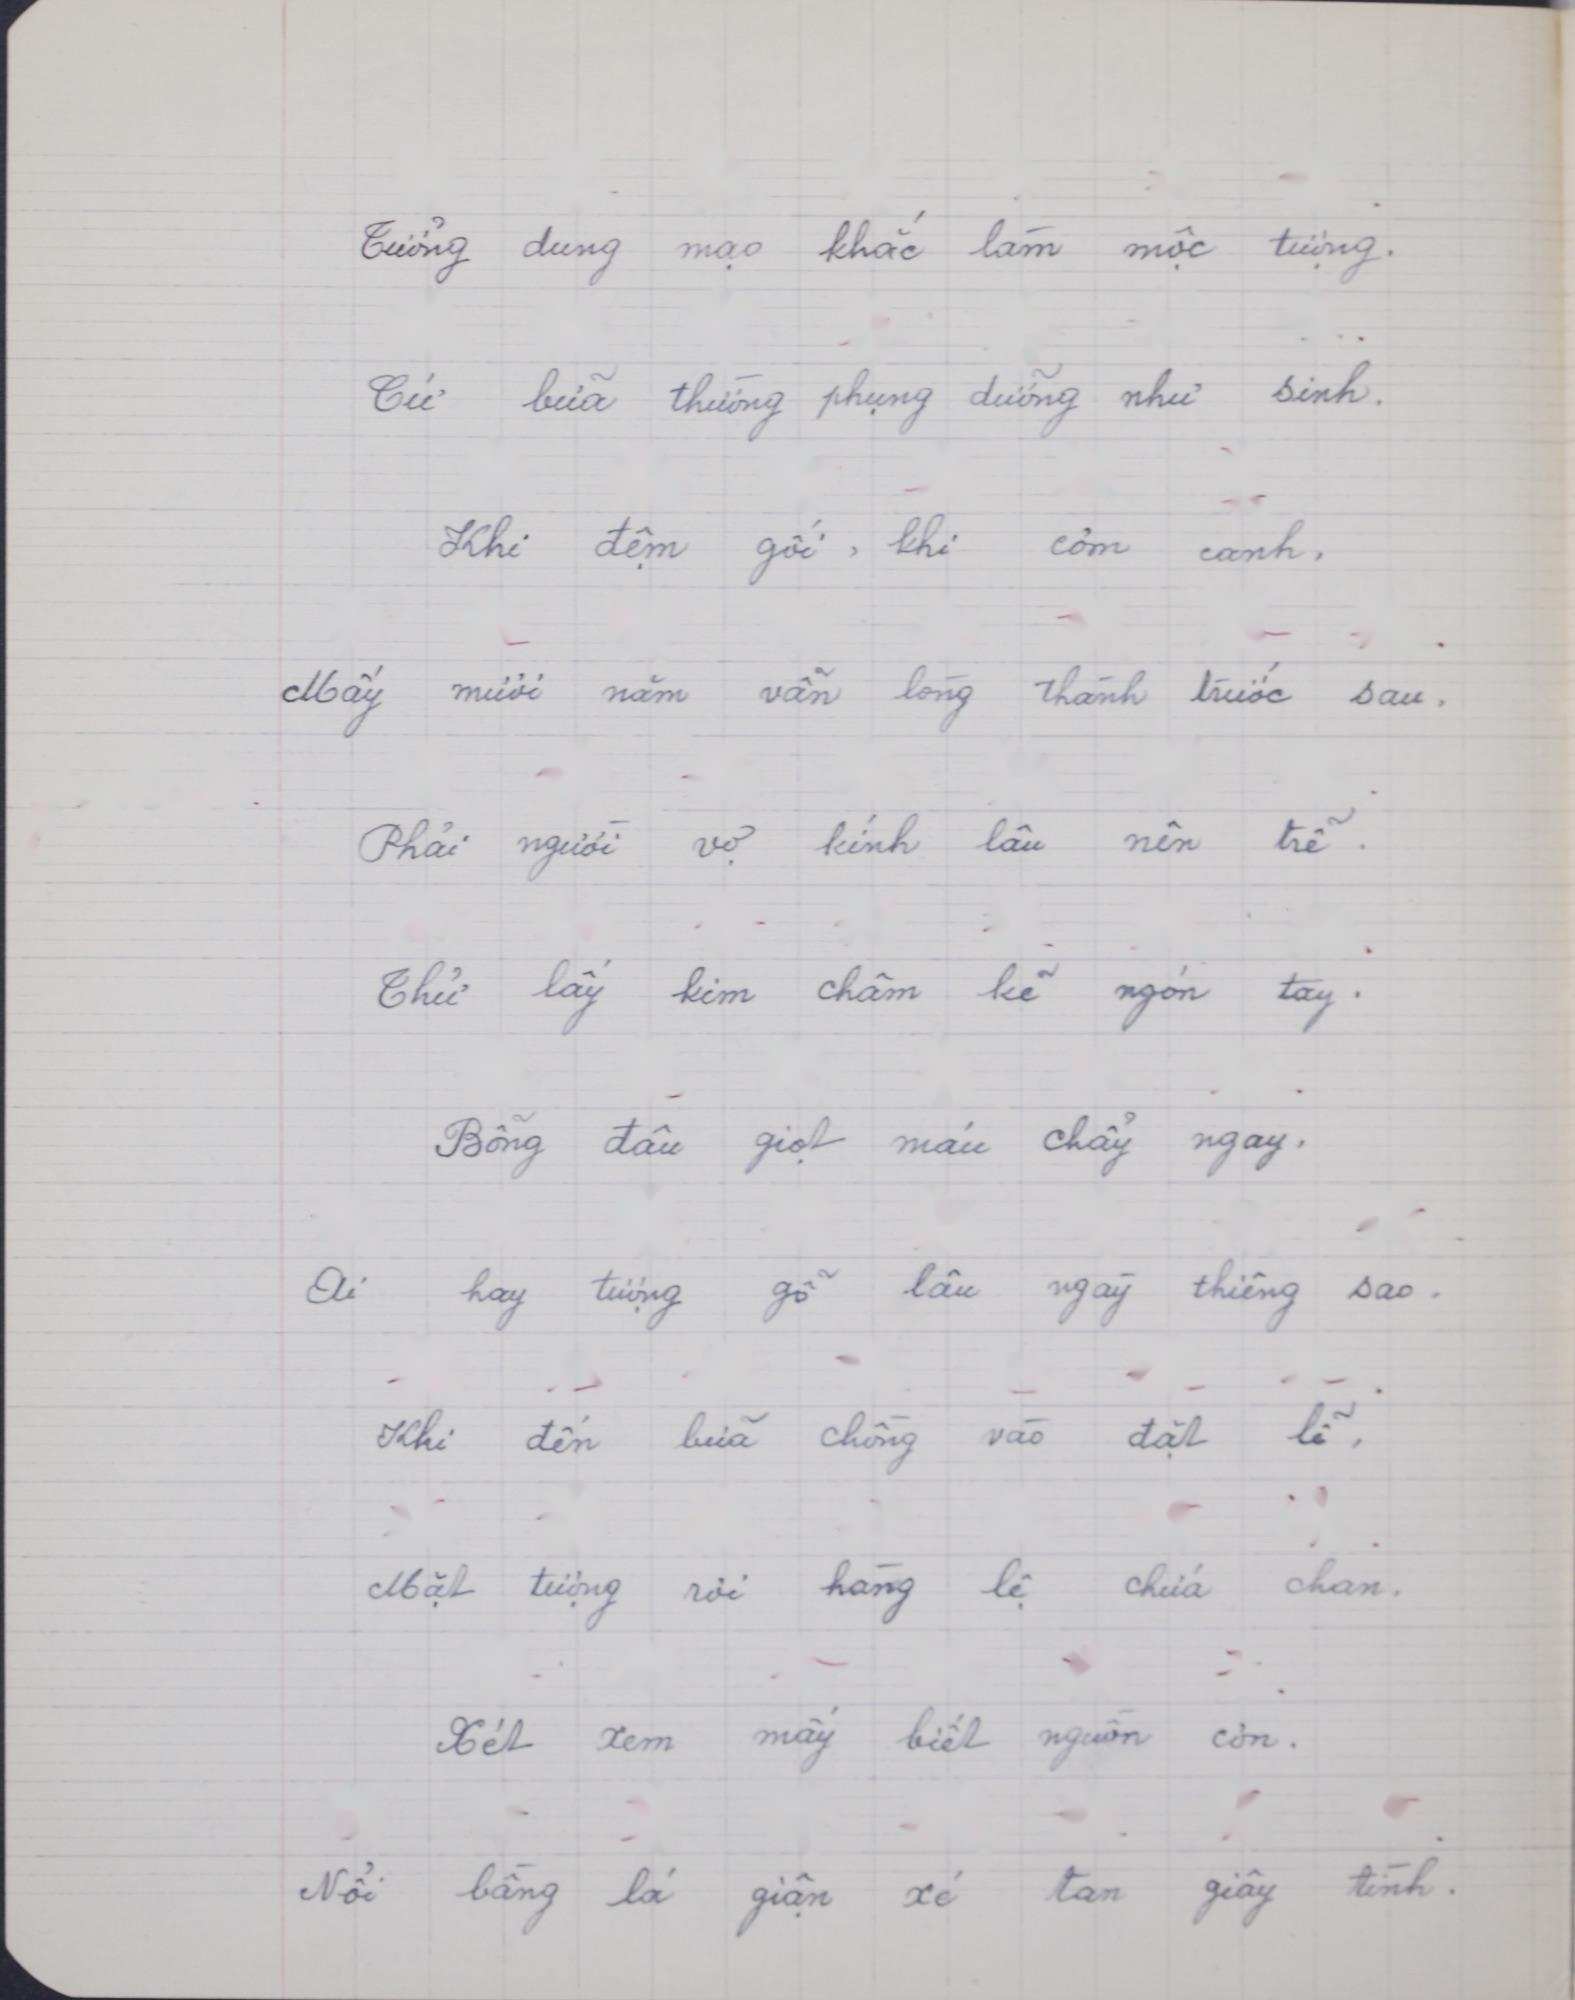 Tưởng dung mạo khắc làm mộc tượng.
Cứ bữa thường phụng dưỡng như sinh.
Khi đệm gối, khi cơm canh,
Mấy mươi năm vẫn lòng thành trước sau.
Phải người vợ kính lâu nên trễ.
Thử lấy kim châm kẽ ngón tay.
Bỗng đâu giọt máu chẩy ngay.
Ai hay tượng gỗ lâu ngày thiêng sao.
Khi đến bữa chồng vào đặt lễ,
Mặt tượng rơi hàng lệ chứa chan.
Xét xem mấy biết nguồn cơn.
Nổi bầng lá giận xé tan giây tình.